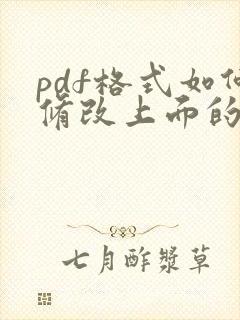 pdf格式如何
修改上面的
七月酢浆草